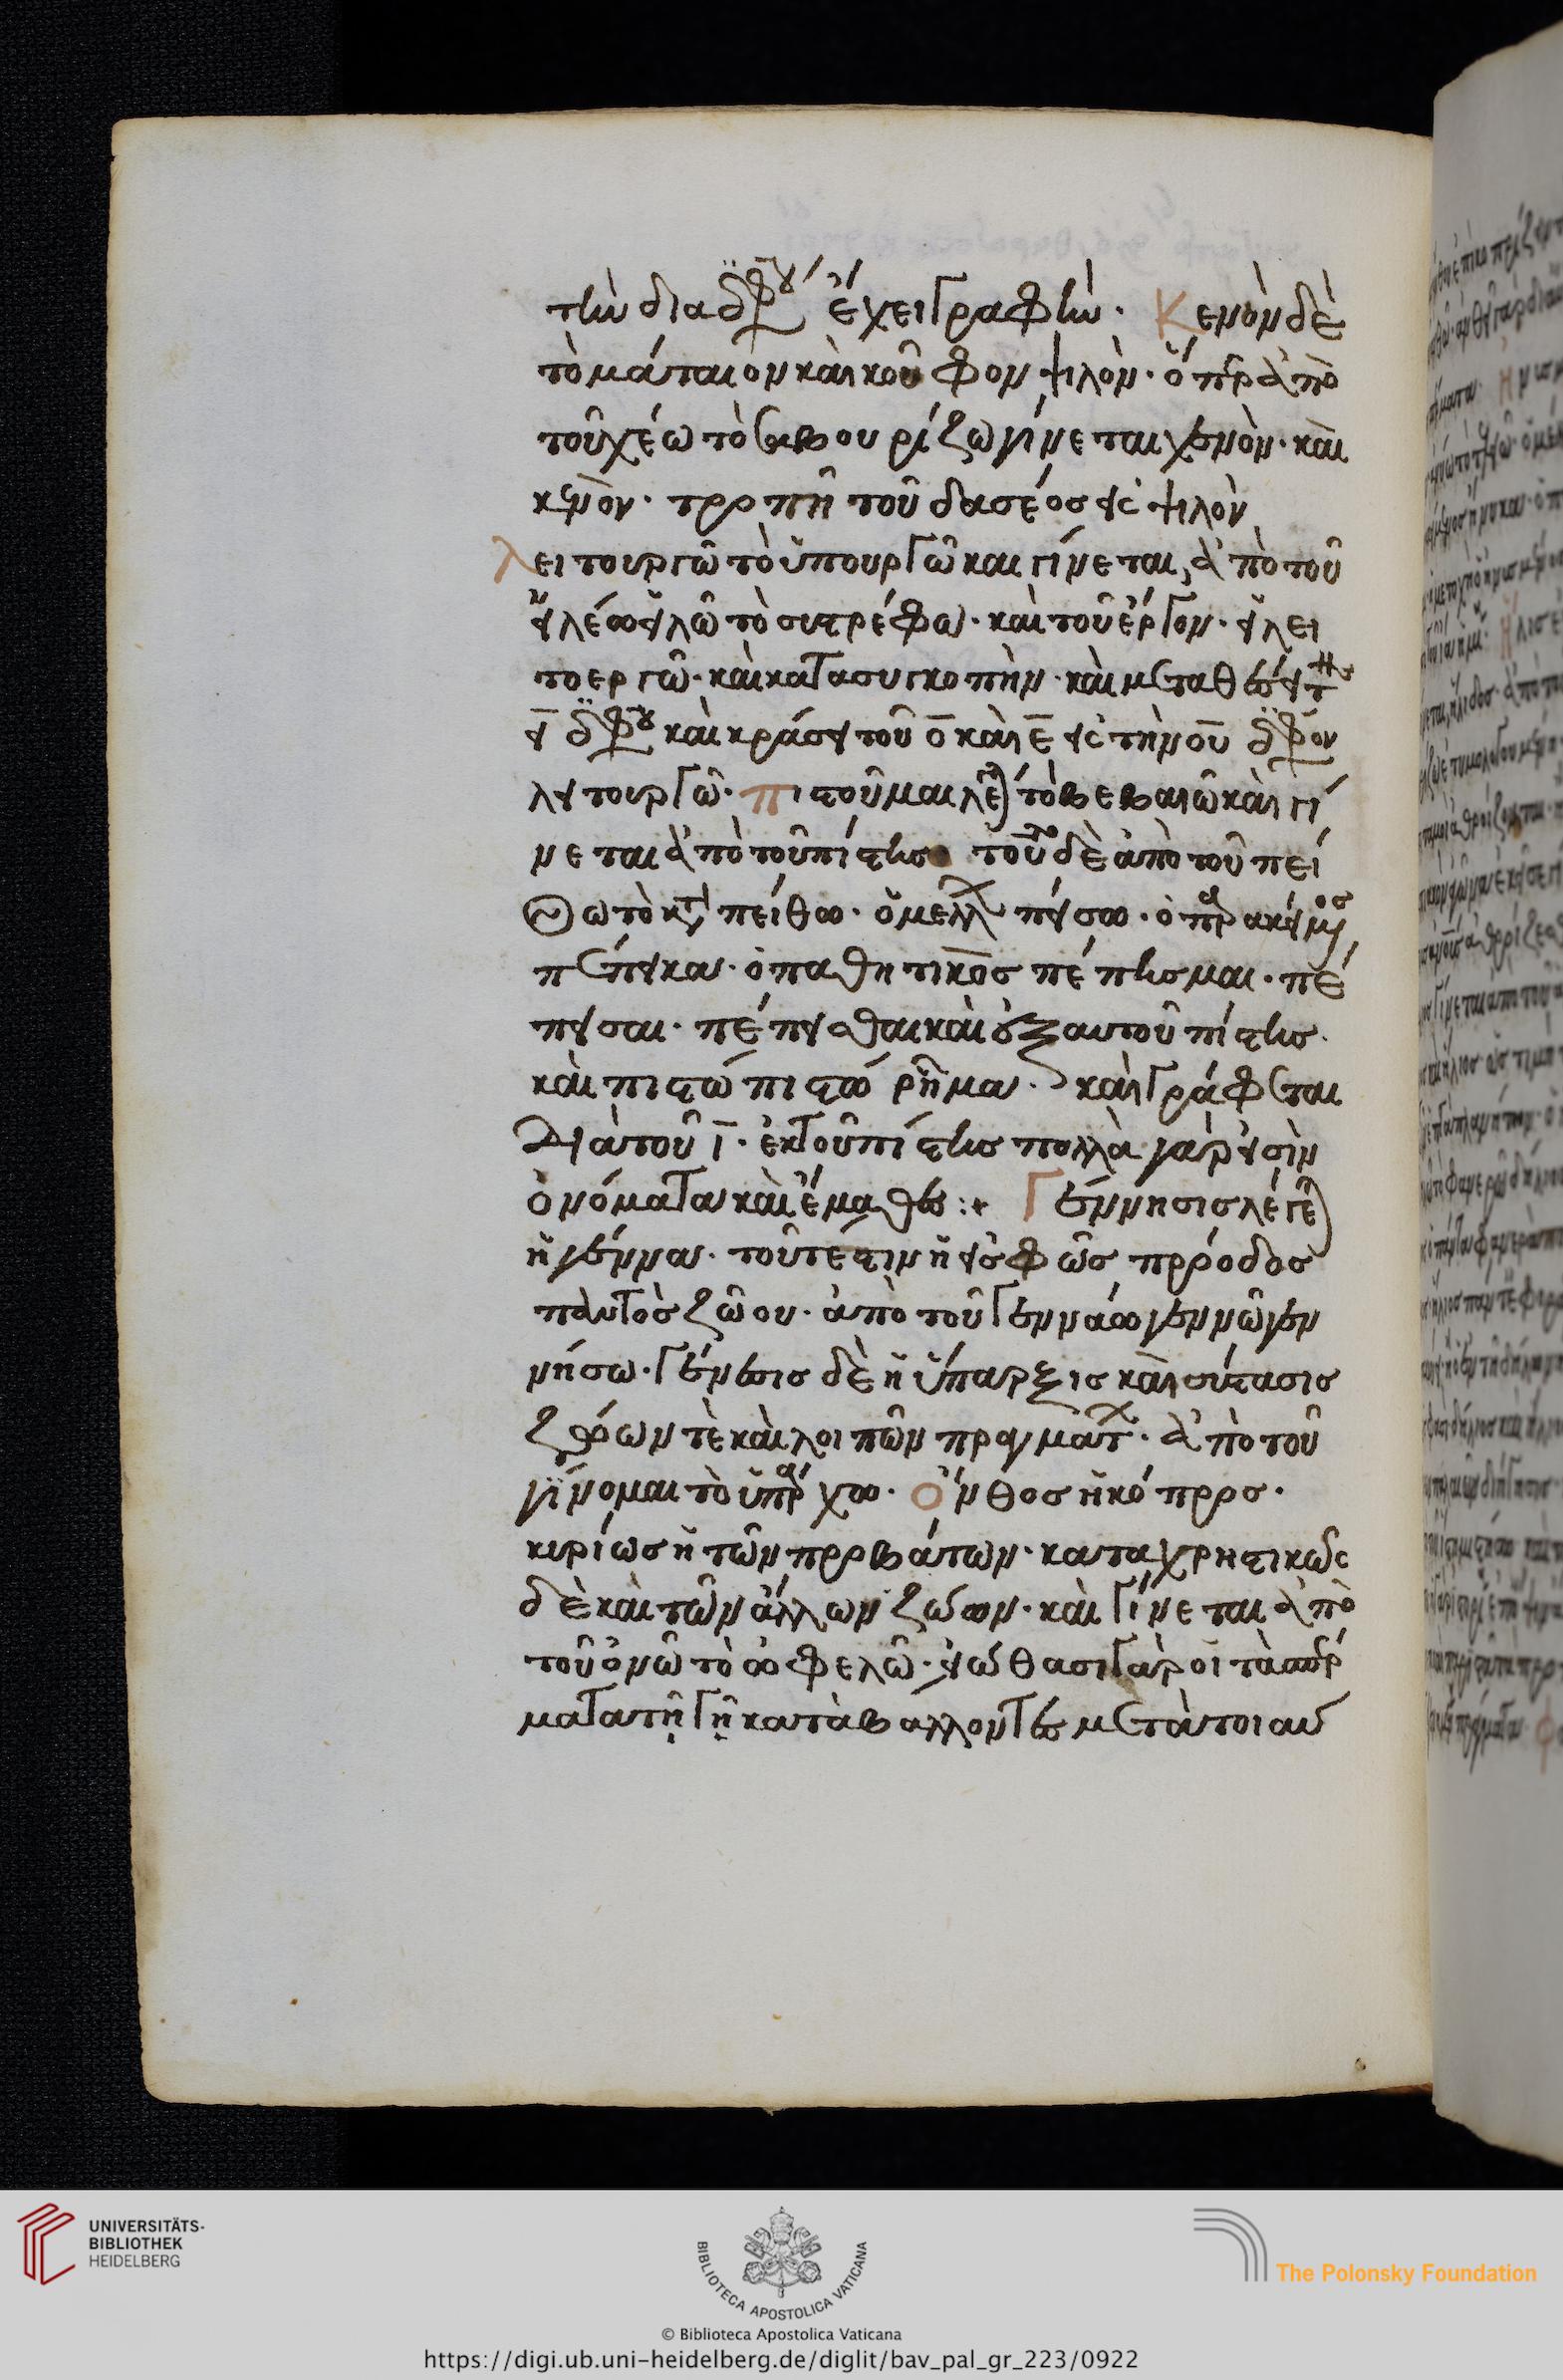 τὴν δια δφ^ου ἔχει γραφήν. Κενὸν δὲ
τὸ μάταιον καὶ κοῦφον ψιλὸν. ὅπερ ἀπὸ
τοῦ χέω τὸ γίνεται χενὸν. καὶ
κενὸν. τροπῆ τοῦ δασέος εἰς ψιλὸν
λειτουργῶ τὸ ὑπουργῶ καὶ γίνεται ἀπὸ τοῦ
εἰλέω εἰλῶ τὸ συστρέφω. καὶ τοῦ ἔργον. εἰλει
τοεργῶ. καὶ κατασυγκοπὴν. καὶ μεταθέσει τῆς
ει δφ^ου καὶ κράσει τοῦ ο καὶ ε εἰς τὴν ου δφ^ον
λειτουργῶ. πιστοῦμαι λέγεται τὸ βεβαιῶ καὶ γί
νεται ἀπὸ τοῦ πίστις τοῦτο δὲ ἀπὸ τοῦ πεί
θω τὸ πείθω. ὁ μέλλων πείσω. ὁ παρακείμενος
πέπεικα. ὁ παθητικὸς πέπεισμαι. πέ
πεισαι. πέπεισθαι καὶ ἐξ αυτοῦ πίστις.
καὶ πιστώ πιστῶ ρῆμα. καὶ γράφεται
διὰ τοῦ ι. ἐκ τοῦ πίστις πολλὰ γάρ εἰσὶν
ὀνόματα καὶ ἔμαθες :+ Γέννησις λέγεται
ἡ γέννα. τοῦτέστιν ἡ εἰς φῶς πρόοδος
παντὸς ζώου. ἀπὸ τοῦ γεννάω γεννῶ γεν
νήσω. Γένεσις δὲ ἡ ὕπαρξις καὶ σύστασις
ζώων τὲ καὶ λοιπῶν πραγμάτων. ἀπὸ του
γίνομαι τὸ ὑπάρχω. Ὄνθος ἡ κόπρος.
κυρίως ἡ τῶν προβάτων. καταχρηστικῶς
δὲ καὶ τῶν ἄλλων ζώων. καὶ γίνεται ἀπὸ
τοῦ ὀνῶ τὸ ωφελῶ. εἰώθασι γὰρ οἱ τὰ σπέρ
ματα τῇ γῇ καταβάλλοντες μετὰ τοιαύ
UNIVERSITÄTS-
BIBLIOTHEK
HEIDELBERG
BIBLIOTECA APOSTOLICA VATICANA
The Polonsky Foundation
© Biblioteca Apostolica Vaticana
https://digi.ub.uni-heidelberg.de/diglit/bav_pal_gr_223/0922